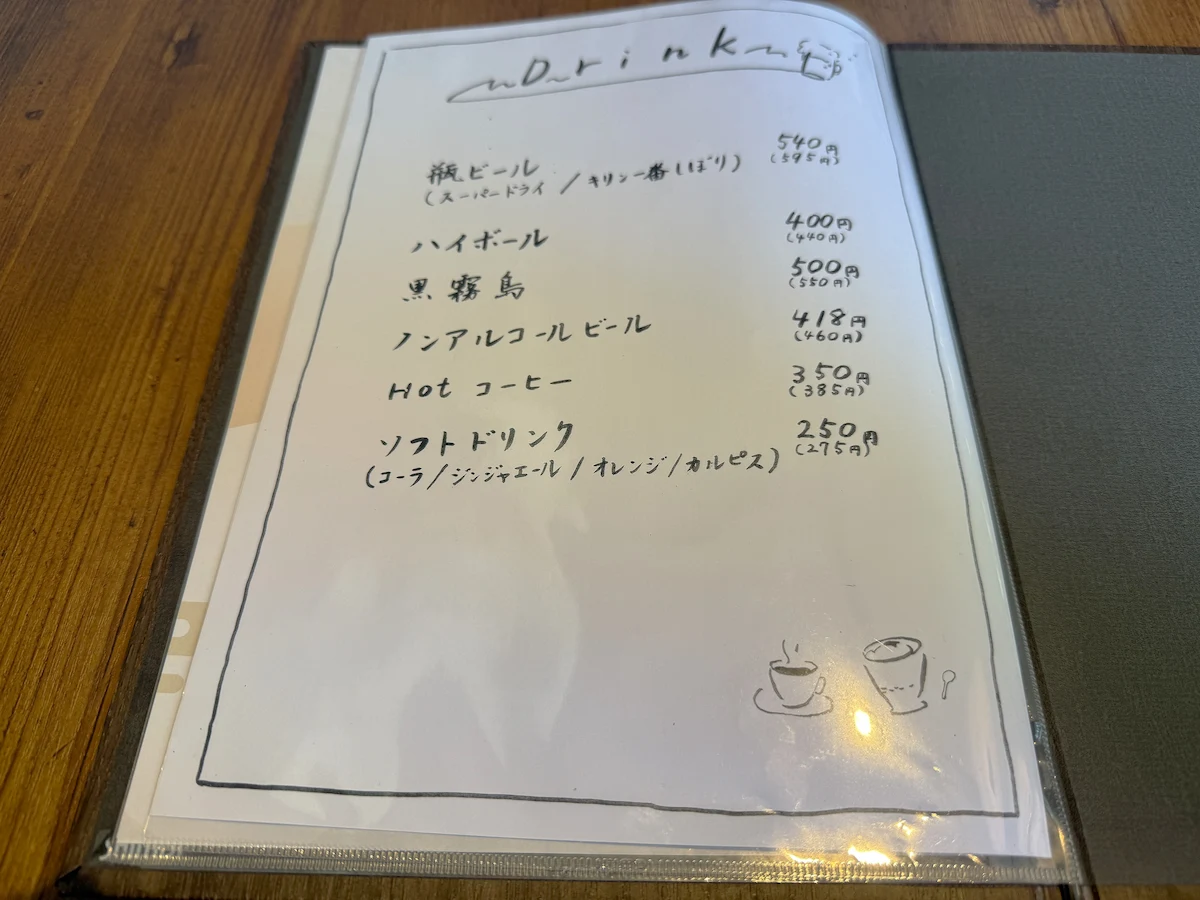 ~Drink~
瓶ビール 540円
(スーパードライ / キリン一番しぼり) (595円)
ハイボール 400円
(440円)
黒霧島 500円
(550円)
ノンアルコールビール 418円
(460円)
Hot コーヒー 350円
(385円)
ソフトドリンク 250円
(275円)
(コーラ/ジンジャエール/オレンジ/カルピス)